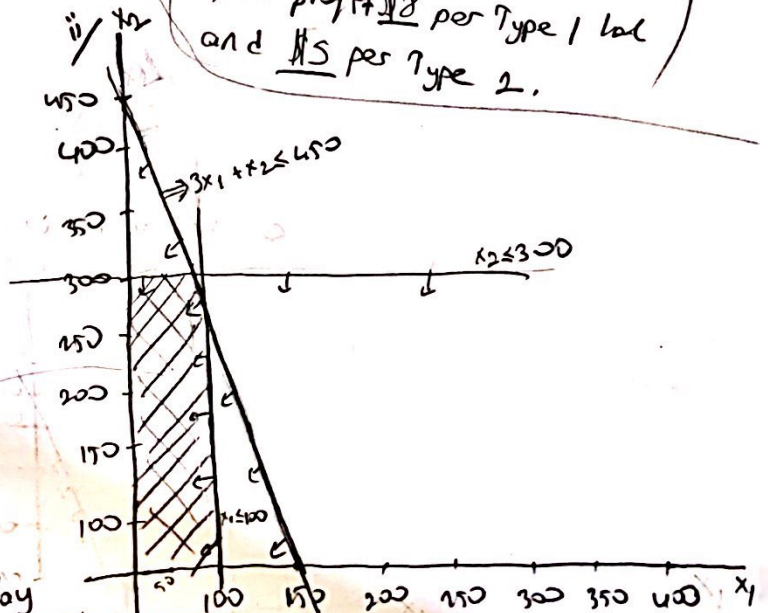 per Type 1 hat
and $5 per Type 2.
ii/
x₂
450
400
⇒3x₁+x₂≤450
350
x₂≤300
300
250
200
150
x₁≤100
100
50 100 150 200 250 300 350 400 x₁
ay